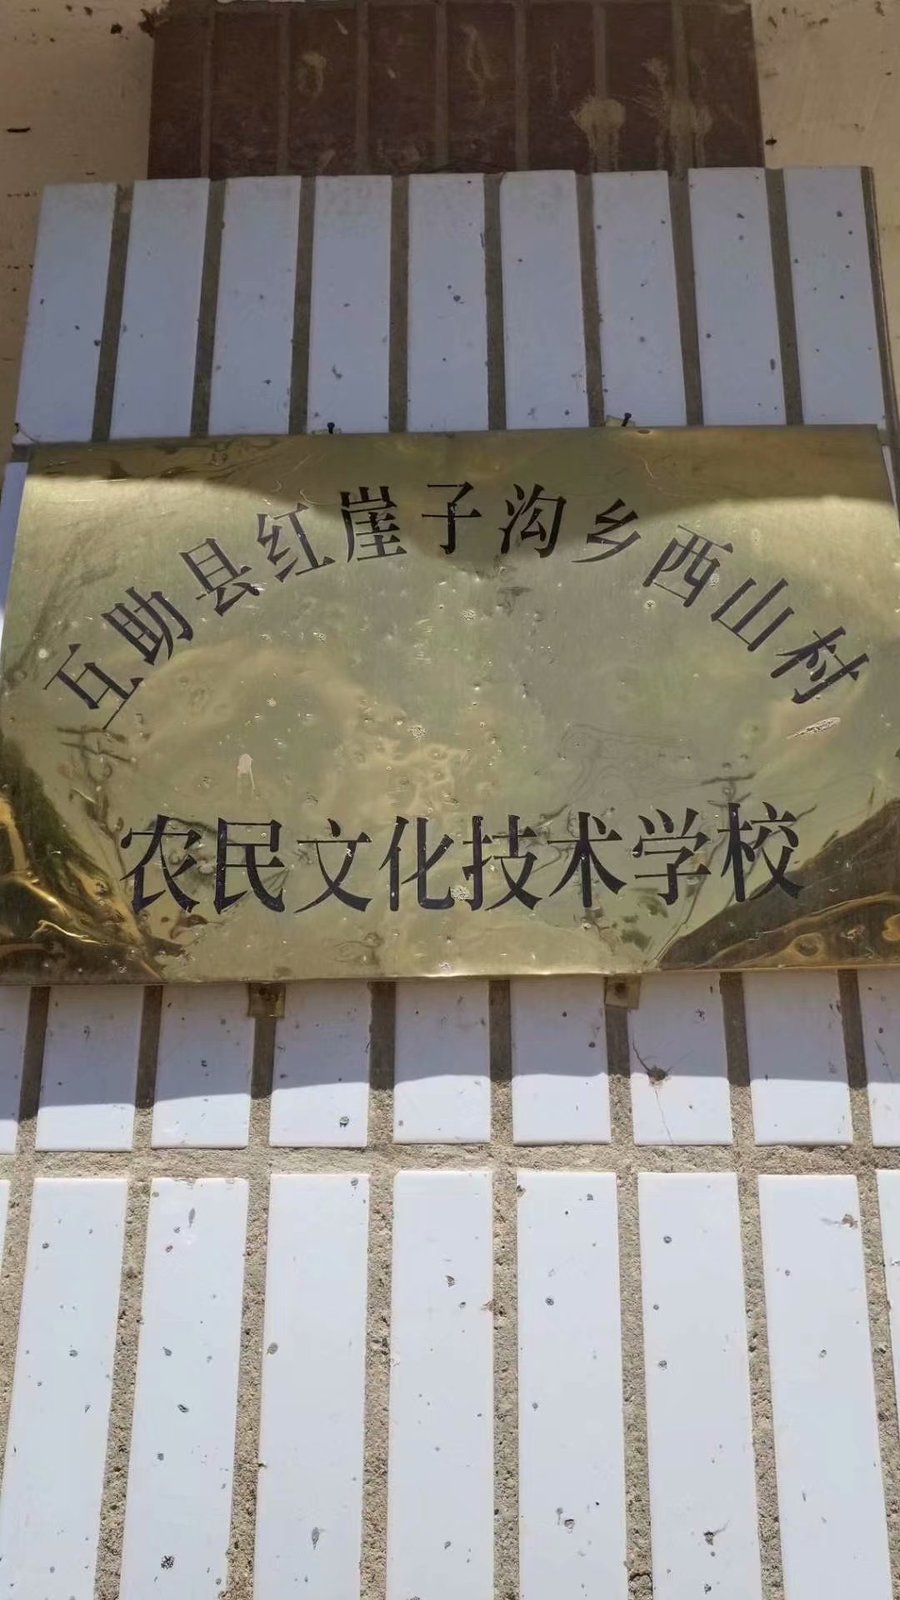 互助县红崖子沟乡西山村
农民文化技术学校